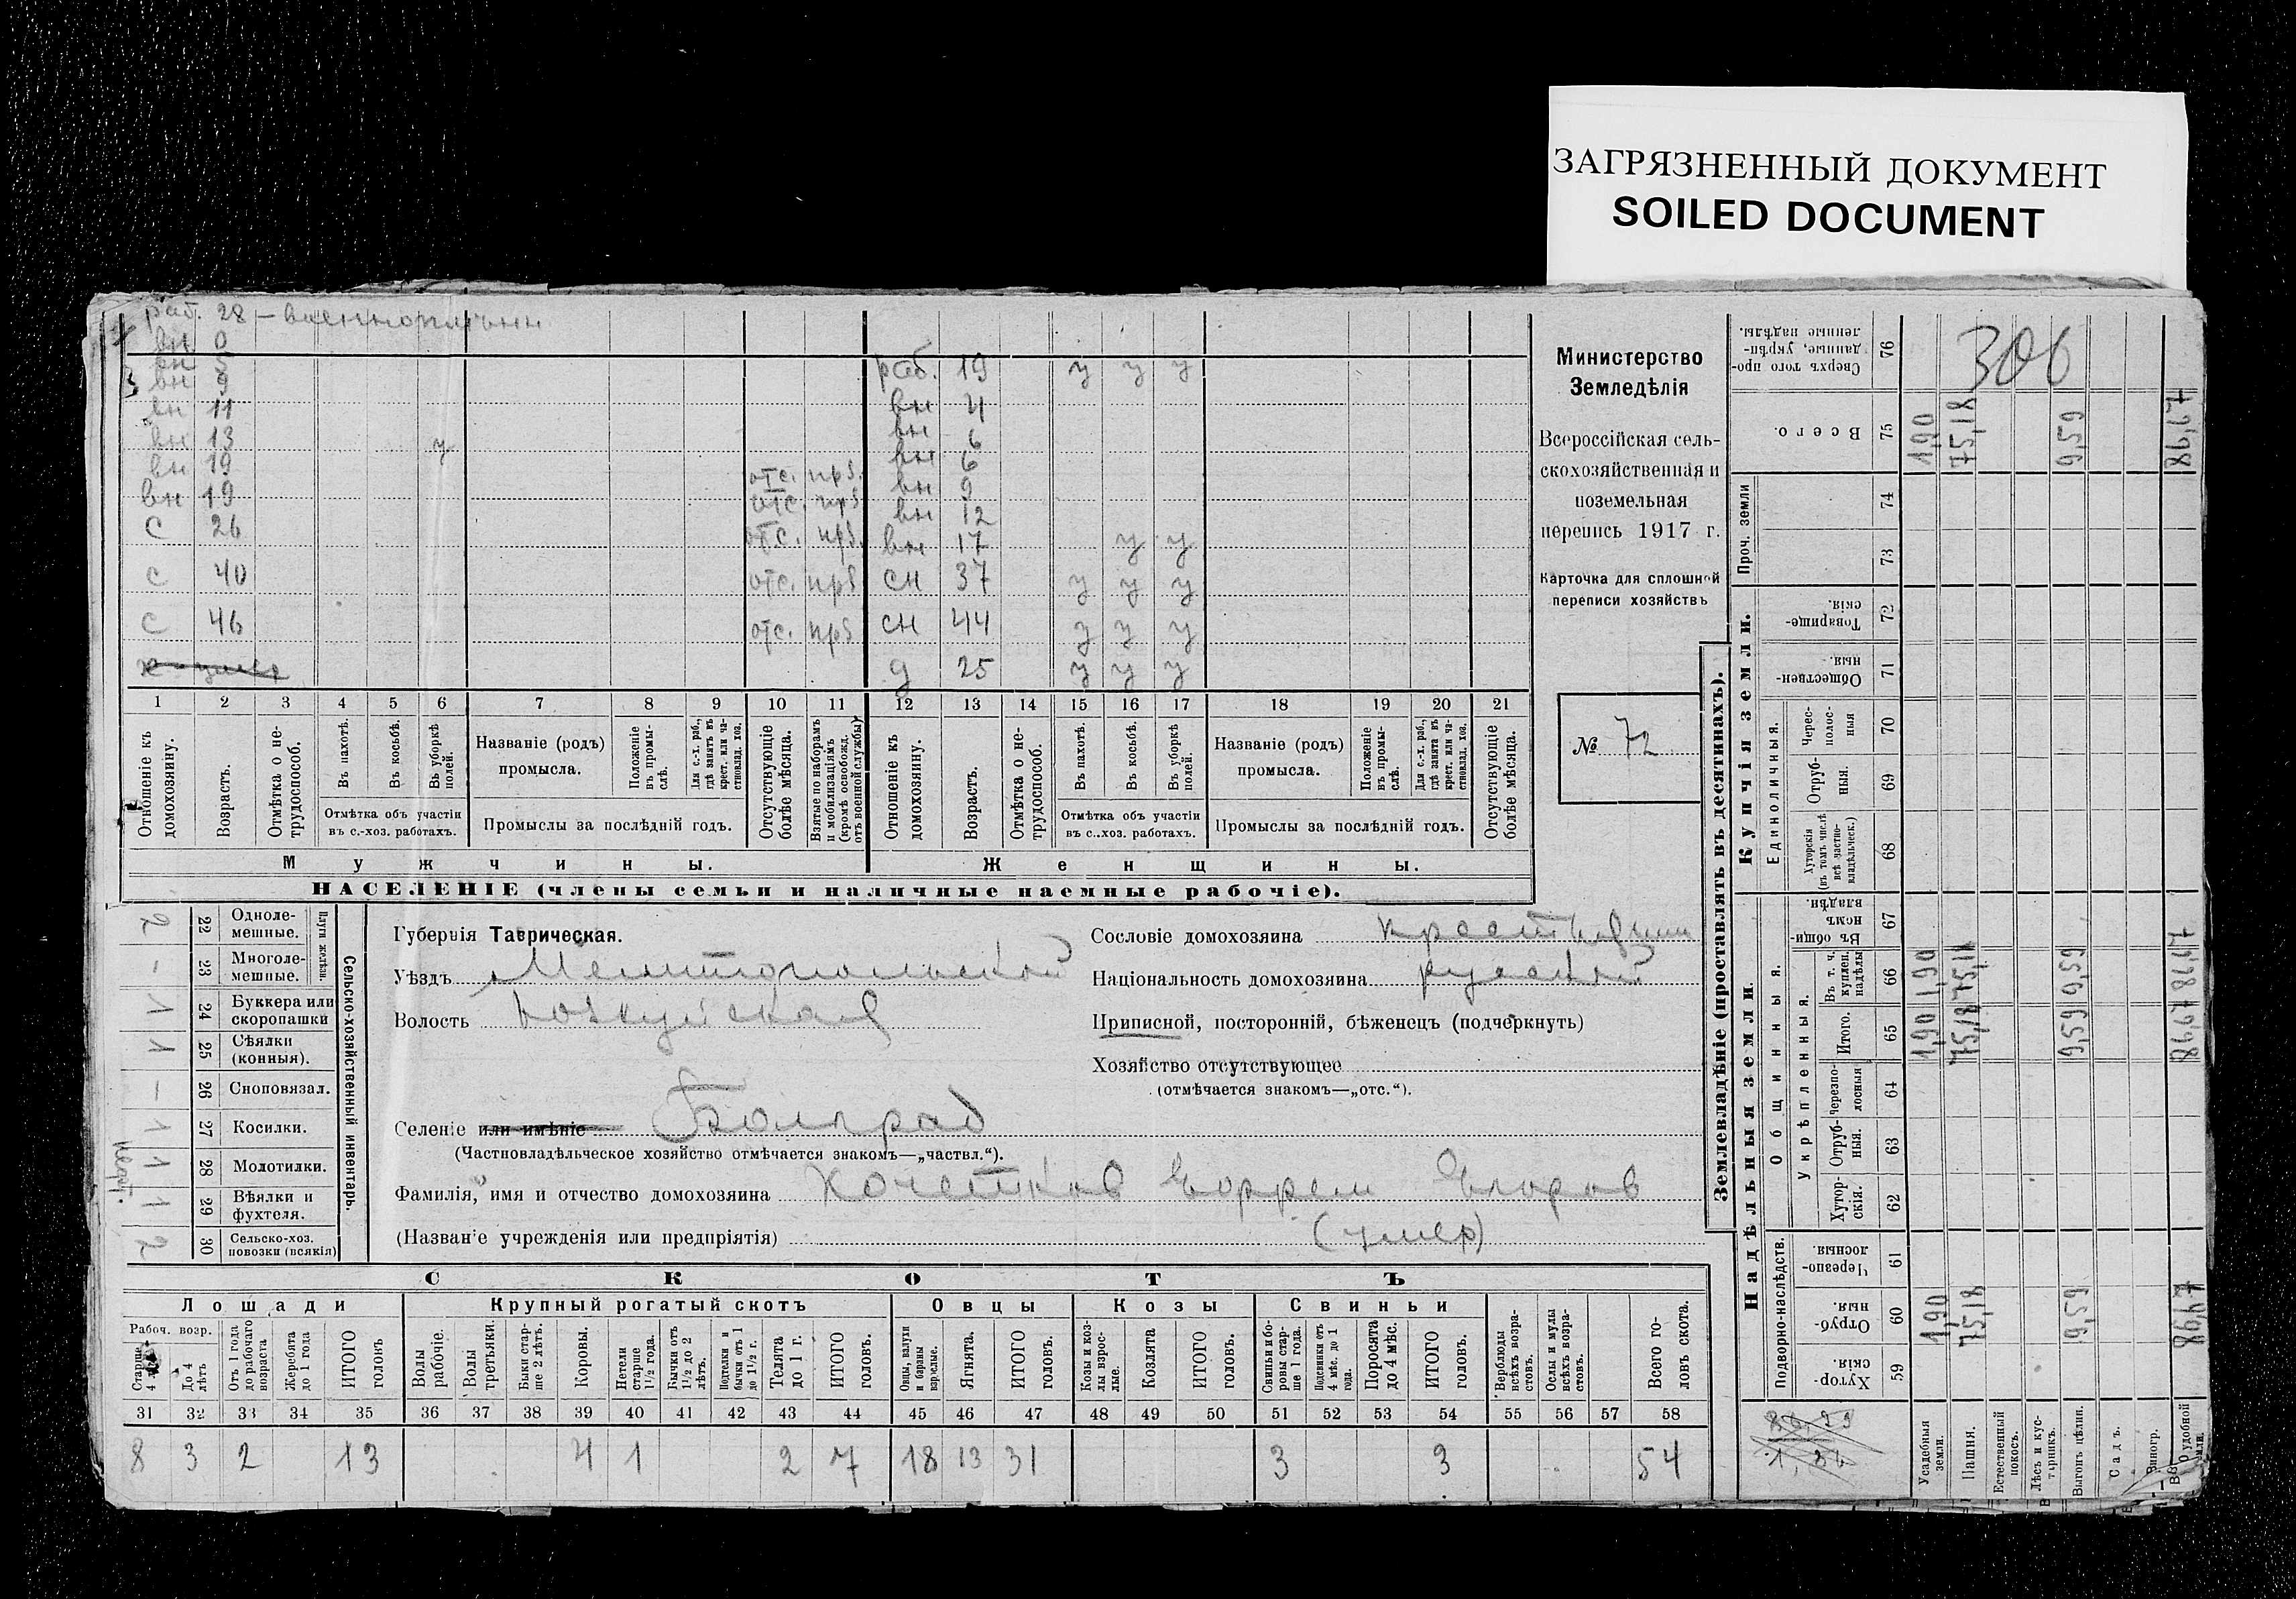 ЗАГРЯЗНЕННЫЙ ДОКУМЕНТ
SOILED DOCUMENT
раб. 28 –
вн 0
вн 5
вн 9
вн 11
вн 13 у
вн 19 отс. прз.
вн 19 отс. прз
с 26 отс. прз.
с 40 отс. прз
с 46 отс. прз
раб. 19 у у у
вн 4
вн 6
вн 6
вн 9
вн 12
вн 17 у у
сн 37 у у у
сн 44 у у у
д 25 у у у
1 2 3 4 5 6 7 8 9 10 11 12 13 14 15 16 17 18 19 20 21
Отношеніе къ домохозяину.
Возрастъ.
Отмѣтка о не-трудоспособ.
Въ пахотѣ.
Въ косьбѣ.
Въ уборкѣ полей.
Отмѣтка объ участіи въ с.-хоз. работахъ.
Названіе (родъ) промысла.
Положеніе въ промы-слѣ.
Для с.-х. раб., гдѣ занятъ въ крест. или ча-стновлад. хоз.
Промыслы за послѣдній годъ.
Отсутствующіе болѣе мѣсяца.
Взятые по наборамъ и мобилизаціямъ (кромѣ освобожд. отъ военной службы)
Отношеніе къ домохозяину.
Возрастъ.
Отмѣтка о не-трудоспособ.
Въ пахотѣ.
Въ косьбѣ.
Въ уборкѣ полей.
Отмѣтка объ участіи въ с..хоз. работахъ.
Названіе (родъ) промысла.
Положеніе въ промы-слѣ.
Для с.-х. раб., гдѣ занята въ крест. или ча-стновлад. хоз.
Промыслы за послѣдній годъ.
Отсутствующіе болѣе мѣсяца.
Мужчины.
Женщины.
НАСЕЛЕНІЕ (члены семьи и наличные наемные рабочіе).
Министерство
Земледѣлія
Всероссійская сель-
скохозяйственная и
поземельная
перепись 1917 г.
Карточка для сплошной
переписи хозяйствъ
№ 72
Сельско-хозяйственный инвентарь.
Плуги желѣзн.
22 Одноле-мешные. 2
23 Многоле-мешные. –
24 Буккера или скоропашки 1
25 Сѣялки (конныя). 1
26 Сноповязал. –
27 Косилки. 1
28 Молотилки. 1
29 Вѣялки и фухтеля. 1
30 Сельско-хоз. повозки (всякія) 2
Губернія Таврическая.
Уѣздъ Мелитопольскій
Волость
Селеніе или имѣніе Болград
(Частновладѣльческое хозяйство отмѣчается знакомъ—„частвл.“).
Фамилія, имя и отчество домохозяина Кочетков
(Названіе учрежденія или предпріятія) (умер)
Сословіе домохозяина
Національность домохозяина русскій
Приписной, посторонній, бѣженецъ (подчеркнуть)
Хозяйство отсутствующее
(отмѣчается знакомъ—„отс.“).
СКОТЪ
Лошади
Крупный рогатый скотъ
Овцы
Козы
Свиньи
Рабоч. возр.
Старше 4
До 4 лѣтъ
Отъ 1 года до рабочаго возраста
Жеребята до 1 года
ИТОГО головъ
Волы рабочіе.
Волы третьяки.
Быки стар-ше 2 лѣтъ.
Коровы.
Нетели старше 1½ года.
Бычки отъ 1½ до 2 лѣтъ.
Подтелки и бычки отъ 1 до 1½ г.
Телята до 1 г.
ИТОГО головъ.
Овцы, валухи и бараны взрослые.
Ягнята.
ИТОГО головъ.
Козы и коз-лы взрос-лые.
Козлята
ИТОГО головъ.
Свиньи и бо-ровы стар-ше 1 года.
Подсвинки отъ 4 мѣс. до 1 года.
Поросята до 4 мѣс.
ИТОГО головъ.
Верблюды всѣхъ возра-стовъ.
Ослы и мулы всѣхъ возра-стовъ.
Всего го-ловъ скота.
31 32 33 34 35 36 37 38 39 40 41 42 43 44 45 46 47 48 49 50 51 52 53 54 55 56 57 58
8 3 2 13 4 1 2 7 18 13 31 3 3 54
Землевладѣніе (проставлять въ десятинахъ).
Купчія земли.
Надѣльныя земли.
Сверхъ того про-данные, укрѣп-ленные надѣлы. 76
306
Всего. 75
1,90 75,18 9,59 86,67
Проч. земли 74 73
Товарище-скія. 72
Обществен-ныя. 71
Единоличныя.
Черес-полос-ныя 70
Отруб-ныя. 69
Хуторскія (въ томъ числѣ всѣ частно-владѣльческ.) 68
Въ общи-номъ владѣн. 67
Общинныя.
Укрѣпленныя.
Въ т. ч. куплен. надѣлы 66
1,90 75,18 9,59
Итого. 65
1,90 75,18 9,59 86,67
Черезпо-лосныя 64
Отруб-ныя. 63
Хутор-скія. 62
Подворно-наслѣдств.
Черезпо-лосныя. 61
Отруб-ныя. 60
1,90 75,18 9,59 86,67
Хутор-скія. 59
Усадебныя земли.
Пашня.
Естественный покосъ.
Лѣсъ и кус-тарникъ.
Выгонъ цѣлин.
Садъ.
Виногр.
удобной земли.